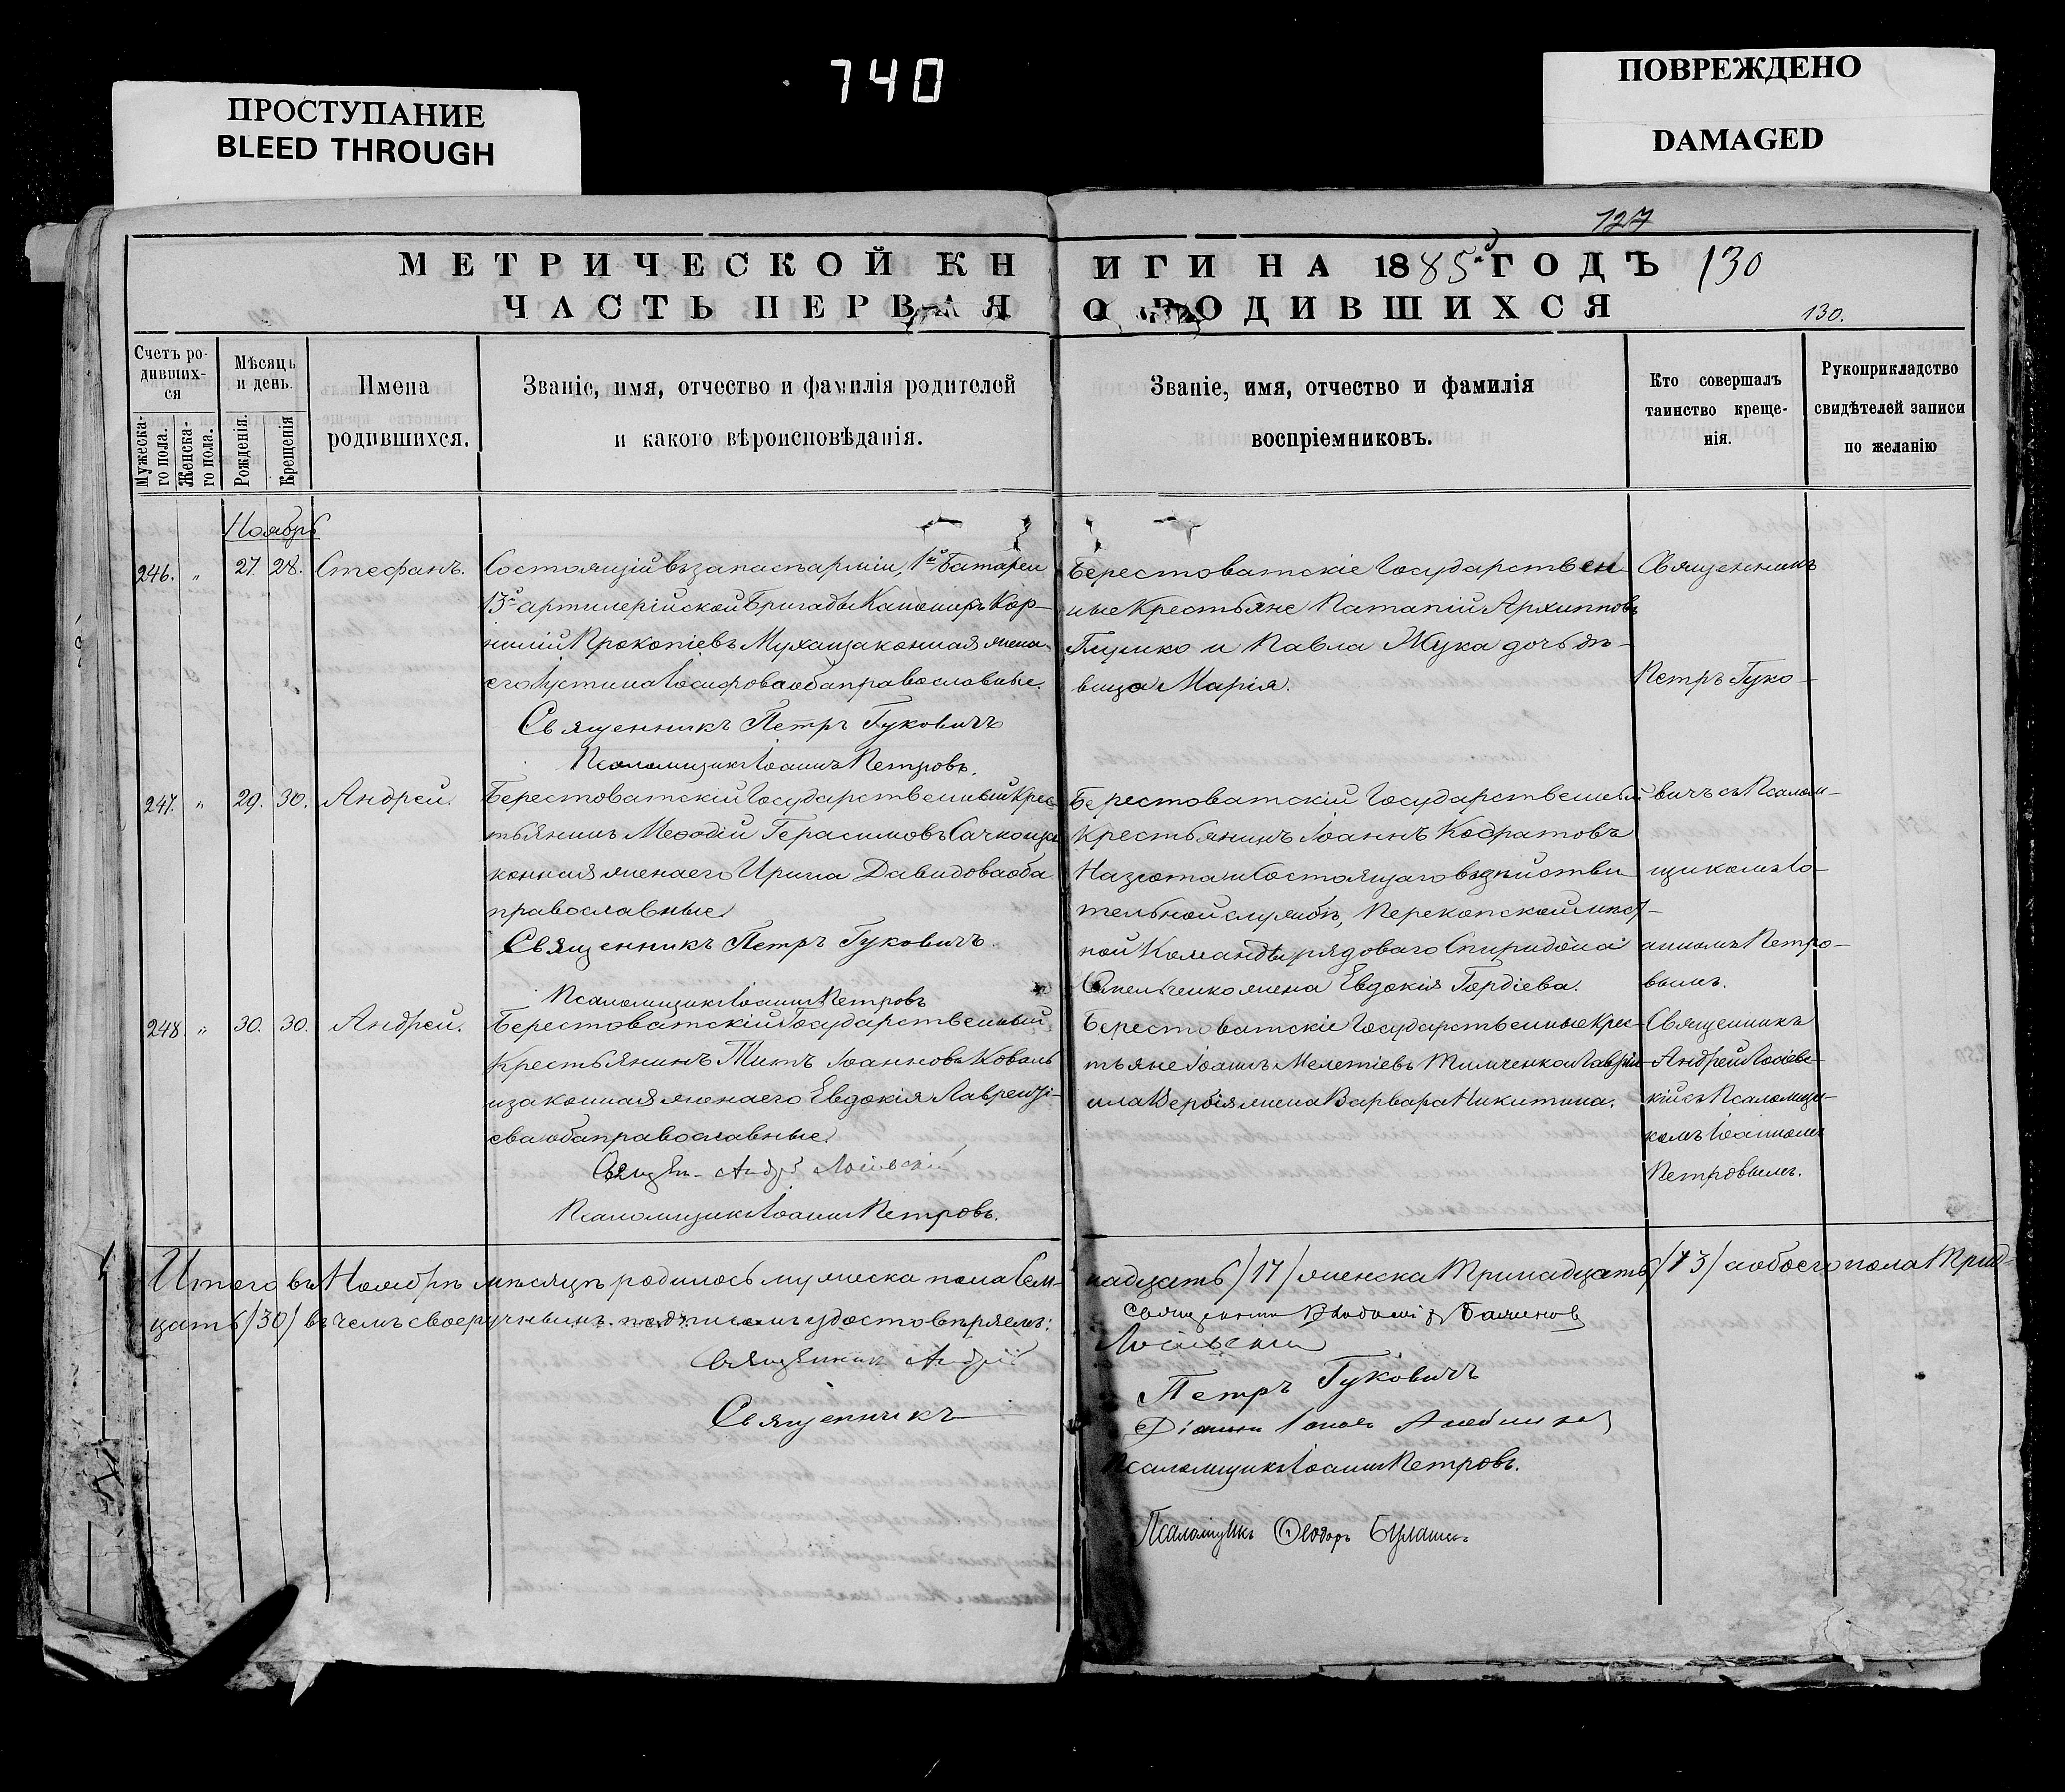 740
ПРОСТУПАНИЕ
BLEED THROUGH
ПОВРЕЖДЕНО
DAMAGED
127
МЕТРИЧЕСКОЙ КНИГИ НА 1885й ГОДЪ 130
ЧАСТЬ ПЕРВАЯ О РОДИВШИХСЯ
130.
Счетъ ро-
дивших-
ся
Мужеска-
го пола.
Женска-
го пола.
Мѣсяцъ
и день.
Рожденія.
Крещенія
Имена
родившихся.
Званіе, имя, отчество и фамилія родителей
и какого вѣроисповѣданія.
Званіе, имя, отчество и фамилія
воспріемниковъ.
Кто совершалъ
таинство креще-
нія.
Рукоприкладство
свидѣтелей записи
по желанію
Ноябрь
246. " 27. 28. Стефанъ.
Состоящій въ запасѣ арміи, 1й Батареи
13й артилерійской Бригады Канониръ Кор-
нилій Прокопіевъ Муха и законная жена
его Іустина Іосифова оба православные.
Священникъ Петръ Гуковичъ
Псаломщикъ Іоаннъ Петровъ.
Берестоватскіе Государствен
ные Крестьяне Патапій Архипповъ
и Павла Жука дочь дѣ-
вица Марія.
Священникъ
Петръ Гуко-
вичъ съ Псалом-
щикомъ Іо-
анномъ Петро-
вымъ.
247. " 29. 30. Андрей.
Берестоватскій Государственный Крес-
тьянинъ Меѳодій Герасимовъ Сачко и за
конная жена его Ирина Давидова оба
православные.
Священникъ Петръ Гуковичъ.
Псаломщикъ Іоаннъ Петровъ
Берестоватскій Государственный
Крестьянинъ Іоаннъ Кодратовъ
и Состоящаго въ дѣйстви
тельной службѣ, Перекопской мѣст-
ной Команды рядоваго Спиридона
Омельченко жена Евдокія Гордіева.
248. " 30. 30. Андрей.
Берестоватскій Государственный
Крестьянинъ Титъ Іоанновъ Коваль
и законная жена его Евдокія Лавренті-
ева оба православные.
Псаломщикъ Іоаннъ Петровъ.
Берестоватскіе Государственные Крес-
тьяне Іоаннъ Мелетіевъ Тимченко и Гаврі-
ила Вербія жена Варвара Никитина.
Священникъ
Андрей Лосіевс-
кій съ Псаломщи-
комъ Іоанномъ
Петровымъ.
Итого въ Ноябрѣ мѣсяцѣ родилось мужеска пола Сем-
надцать /17/ женска Тринадцать /13/ а обоего пола Трид-
цать /30/ въ чемъ своеручнымъ подписомъ удостовѣряемъ:
Священникъ Андрей
Лосіевскій
Священникъ
Петръ Гуковичъ
Псаломщикъ Іоаннъ Петровъ.
Псаломщикъ Ѳеодоръ